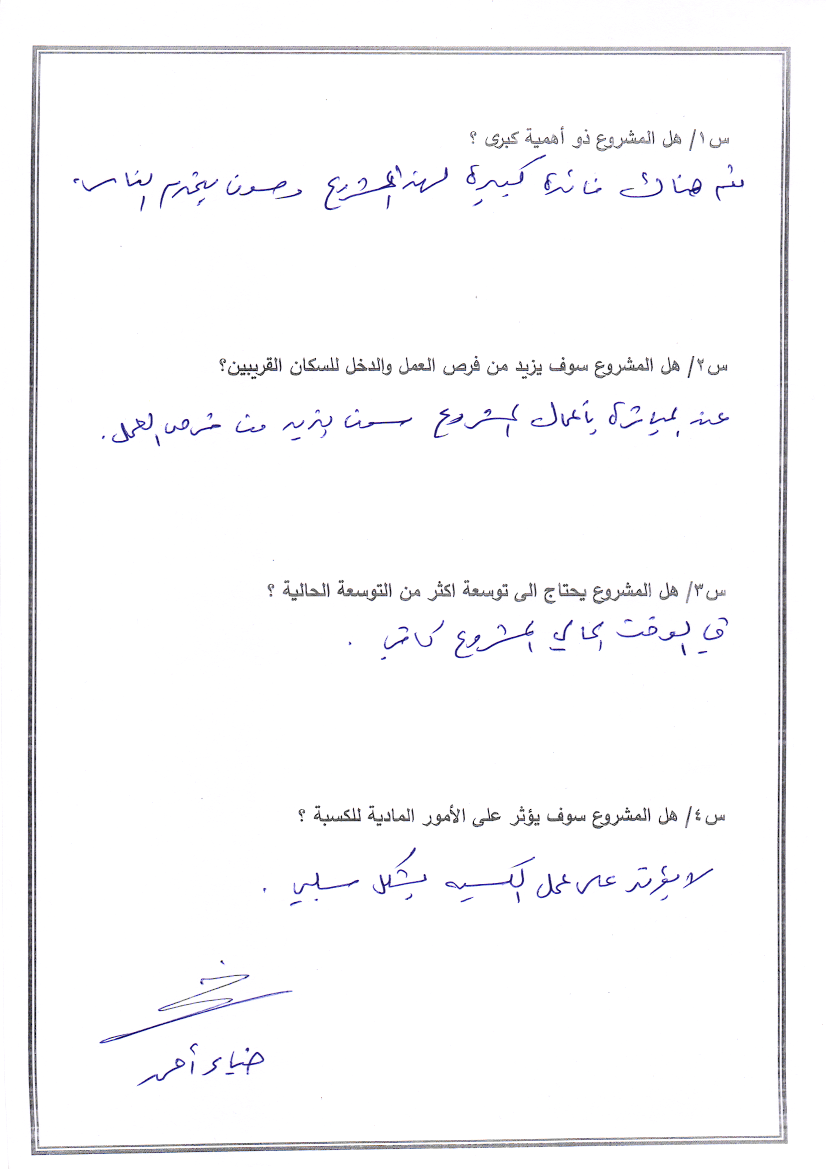 س١/ هل المشروع ذو أهمية كبرى ؟
نعم هناك فائدة كبيرة لهذا المشروع وسوف يخدم الناس.
س٢/ هل المشروع سوف يزيد من فرص العمل والدخل للسكان القريبين؟
عند المباشرة بأعمال المشروع سوف يزيد من فرص العمل.
س٣/ هل المشروع يحتاج الى توسعة اكثر من التوسعة الحالية ؟
في الوقت الحالي المشروع كافي .
س٤/ هل المشروع سوف يؤثر على الأمور المادية للكسبة ؟
لا يؤثر على عمل الكسبه بشكل سلبي .
ضياء أحمد